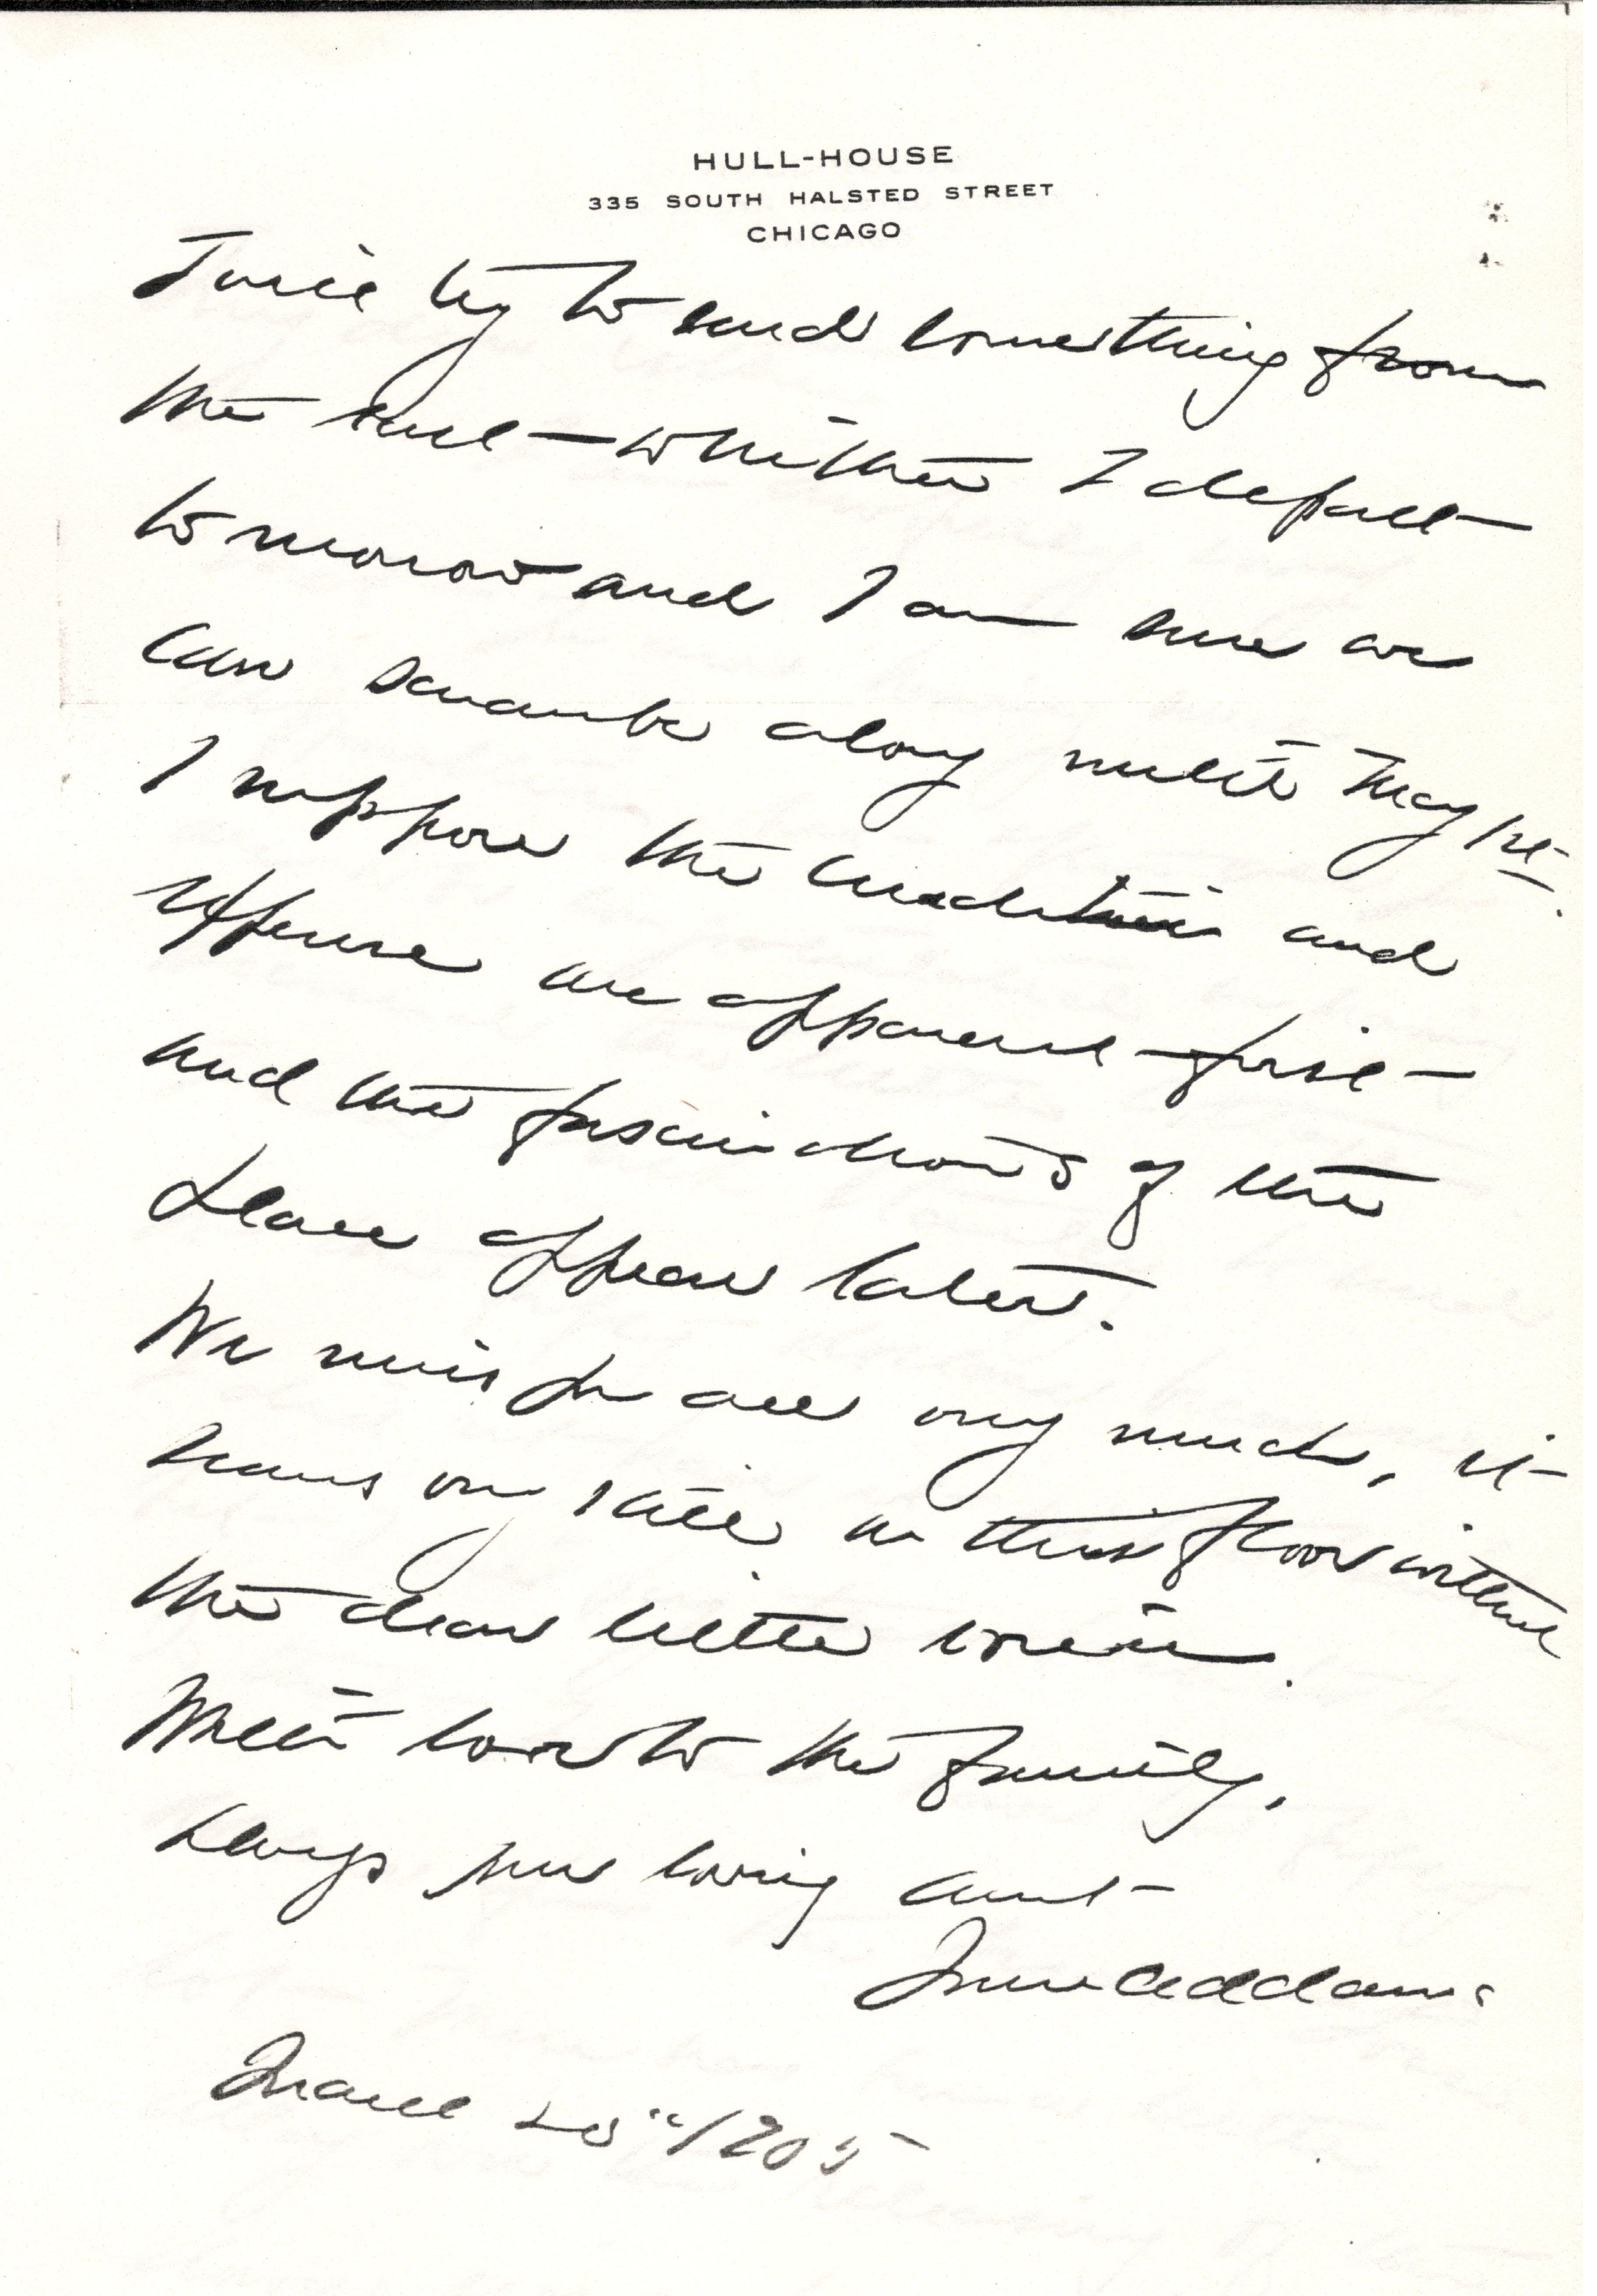 HULL-HOUSE
335 SOUTH HALSTED STREET
CHICAGO
I will try to send something from
the east – whither I depart
tomorrow and I am sure we
can scramble along until May 1st.
I suppose the and
expense are apparent first –
and the fascinations of the
place appear later.
We miss you all very much, it
seems very still on third floor without
the dear little voice.
With love to the family,
Always your loving aunt
Jane Addams
March 20" 1905